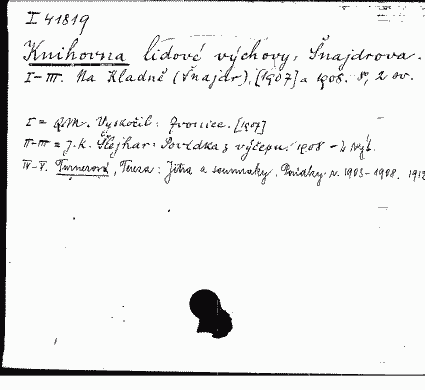 I 41819
Knihovna lidové výchovy, Šnajdrova.
I-III. Na Kladně (Šnajdr), [1907] a 1908. 8°, 2 sv.
I = Q.M. Vyskočil: Zvonice. [1907]
II-III = J.K. Šlejhar: Povídka z výčepu. 1908 -
IV-V. Turnerová, Tereza: Jitra a soumraky. Povídky z r. 1903-1908. 1912